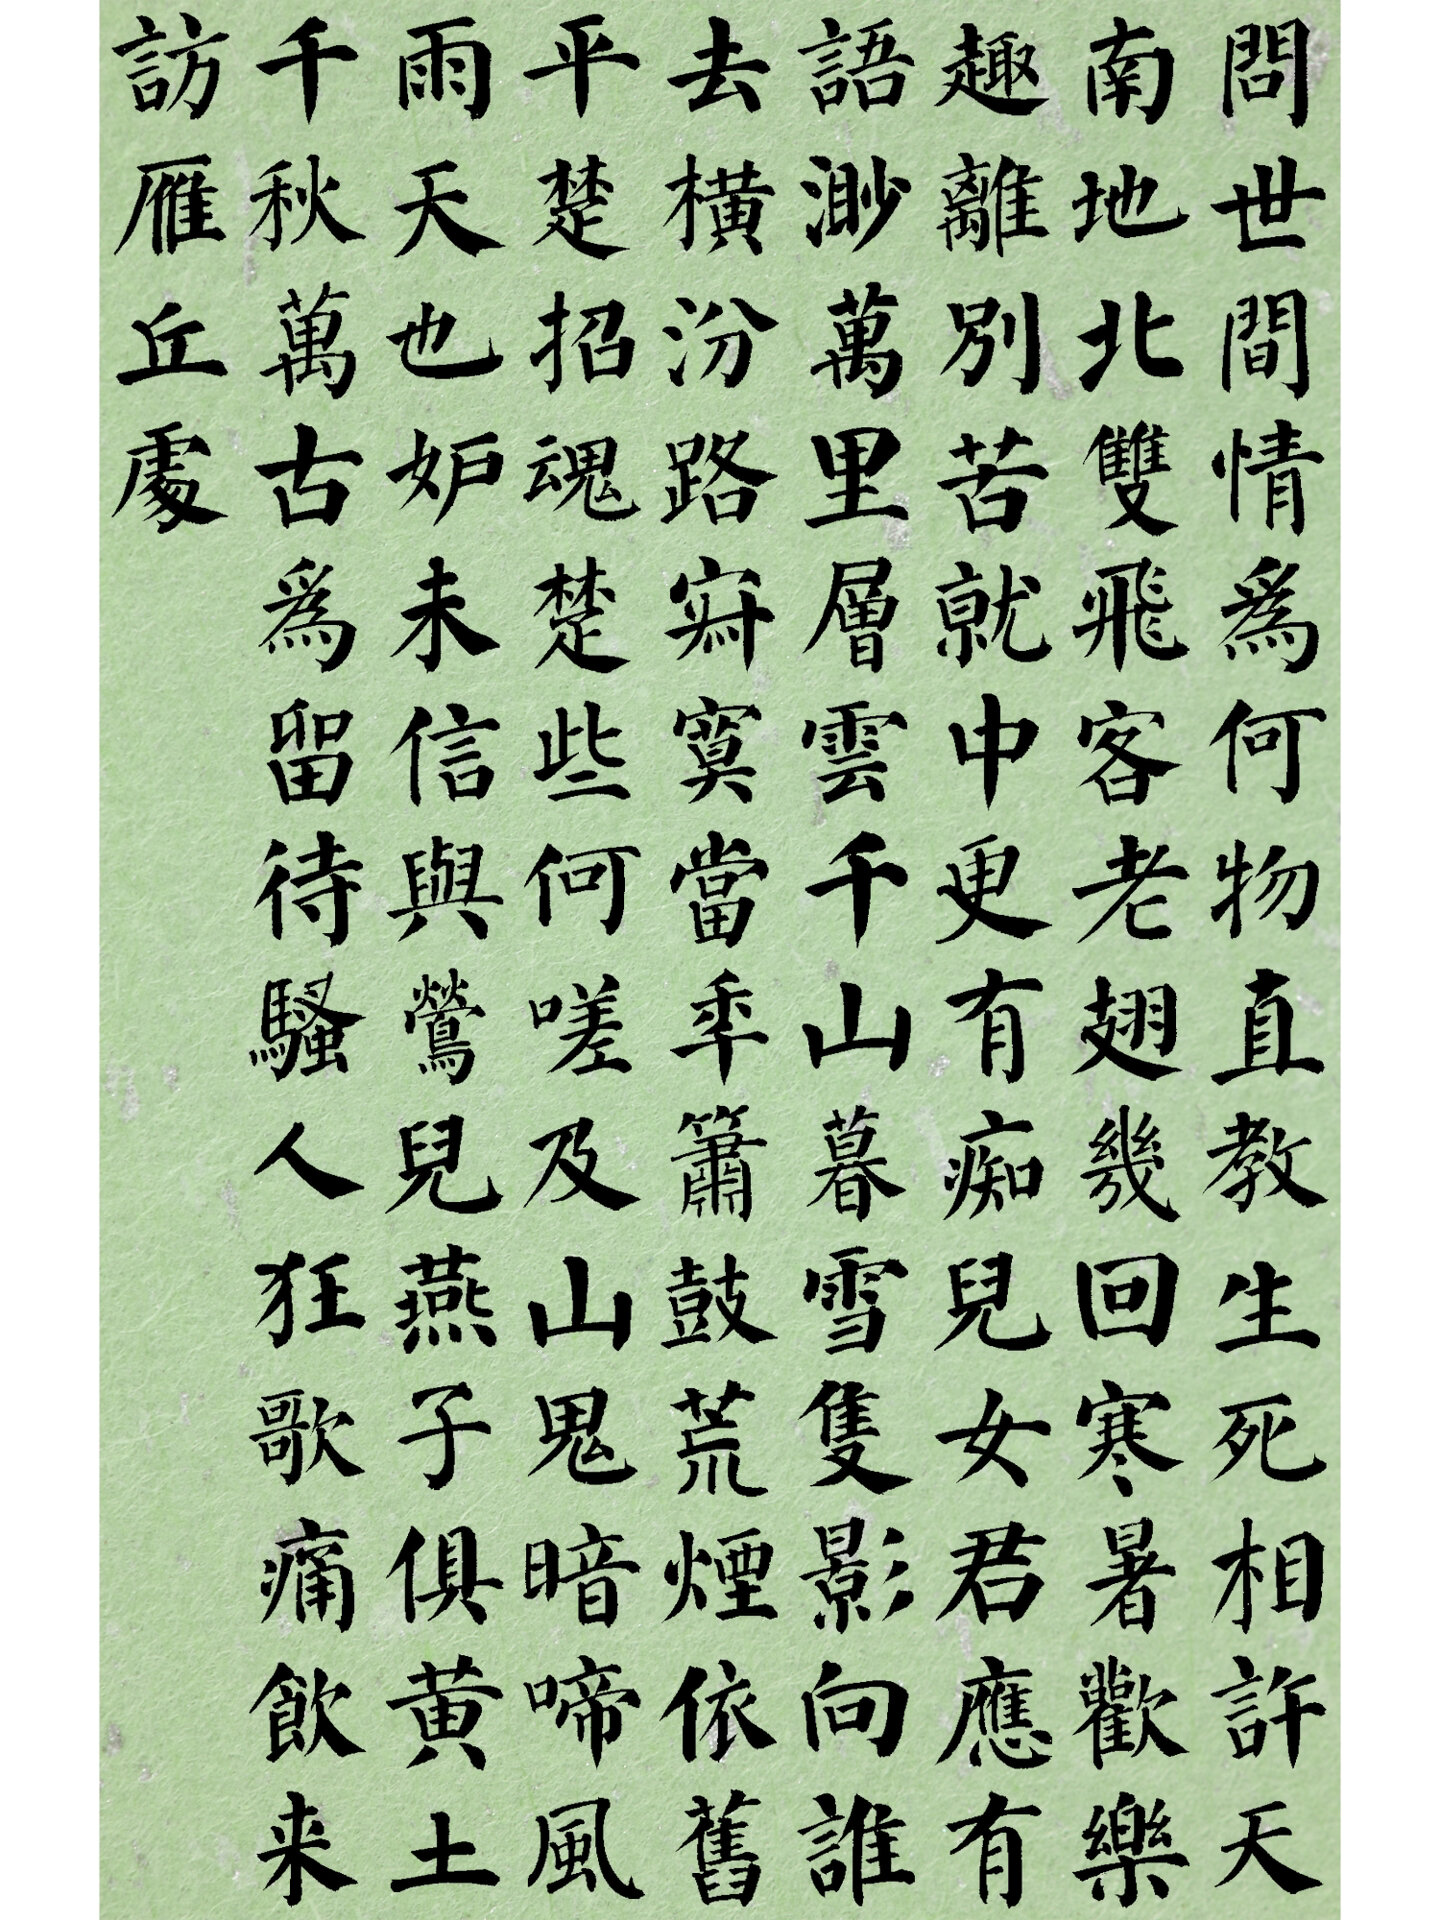 問世間情爲何物直教生死相許天
南地北雙飛客老翅幾回寒暑歡樂
趣離別苦就中更有痴兒女君應有
語渺萬里層雲千山暮雪隻影向誰
去橫汾路寂寞當年簫鼓荒煙依舊
平楚招魂楚些何嗟及山鬼暗啼風
雨天也妒未信與鶯兒燕子俱黄土
千秋萬古爲留待騷人狂歌痛飲来
訪雁丘處